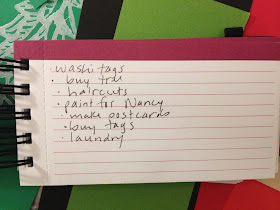 · washi tags
· buy tree
· haircuts
· paint for Nancy
· make postcards
· buy tags
· laundry